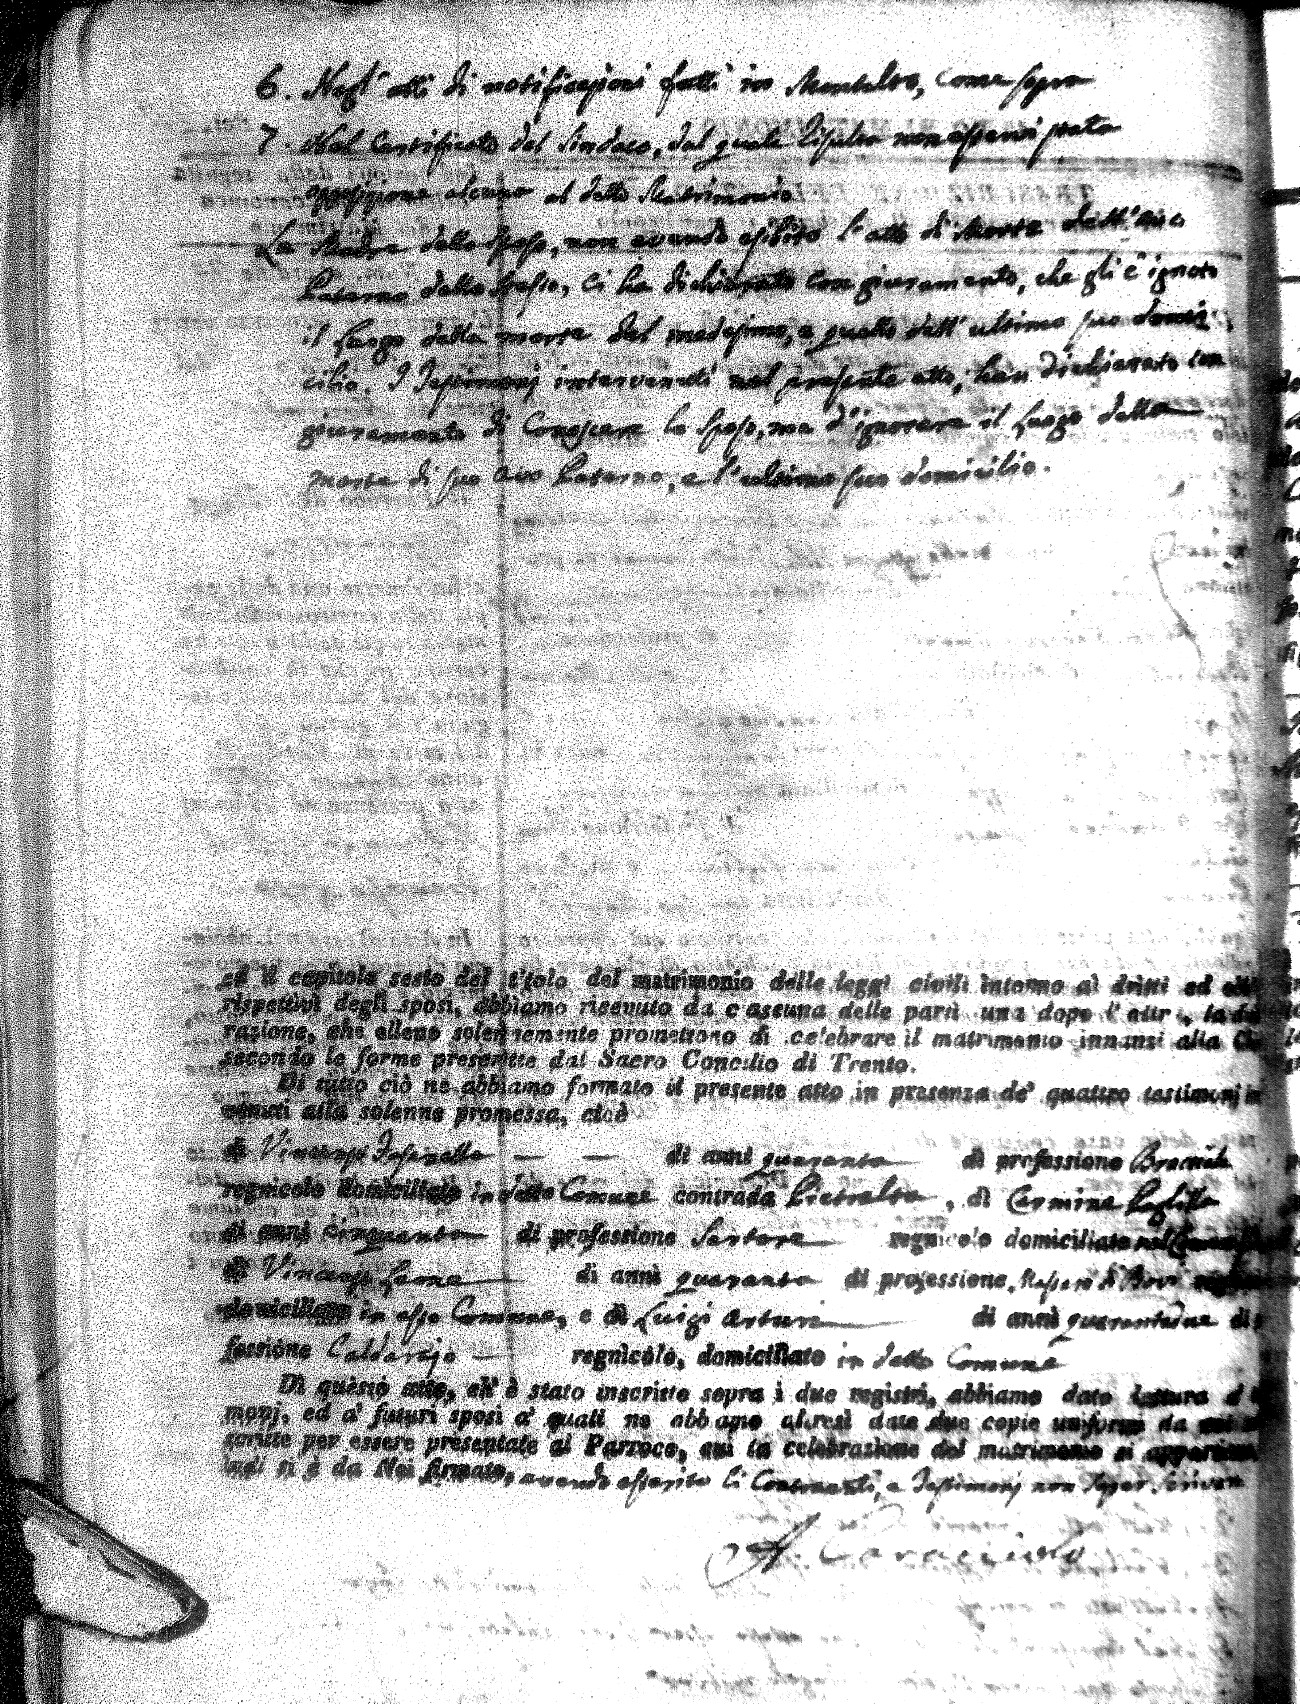 6. Negl' atti di notificazioni fatti in Montalto, come sopra
7 Nel Certificato del Sindaco, dal quale risulta non essersi stata
opposizione alcuna al detto Matrimonio
La Madre dello Sposo, non avendo esibito l'atto di Morte dell' Avo
Paterno dello stesso, ci ha dichiarato con giuramento, che gli è ignoto
il Luogo della morte del medesimo, e quello dell' ultimo suo domi-
cilio. I Testimonj intervenuti nel presente atto, han dichiarato con
giuramento di Conoscere lo Sposo, ma d'ignorare il Luogo della
morte di suo Avo Paterno, e l'ultimo suo domicilio.
ed il capitolo sesto del titolo del matrimonio delle leggi civili intorno ai dritti ed
rispettivi degli sposi, abbiamo ricevuto da ciascuna delle parti una dopo l'altra, la
razione, che elleno solennemente promettono di celebrare il matrimonio innanzi alla
secondo le forme prescritte dal Sacro Concilio di Trento.
Di tutto ciò ne abbiamo formato il presente atto in presenza de' quattro testimonj
venuti alla solenne promessa, cioè
di Vincenzo di anni quaranta di professione Bracciale
regnicolo domiciliato in detto Comune contrada Pietralta, di Carmine
di anni cinquanta di professione Sartore regnicolo domiciliato
di Vincenzo di anni quaranta di professione
domiciliato in esso Comune, e di Luigi Arturi di anni quarantuno di
fessione Caldarajo regnicolo, domiciliato in detto Comune
Di questo atto, ch' è stato inscritto sopra i due registri, abbiamo dato lettura
monj, ed a' futuri sposi a' quali ne abbiamo altresì date due copie uniformi da noi
scritte per essere presentate al Parroco, cui la celebrazione del matrimonio si
indi si è da Noi firmato, avendo asserito li Contraenti, e Testimonj non saper scrivere
A. Caracciolo